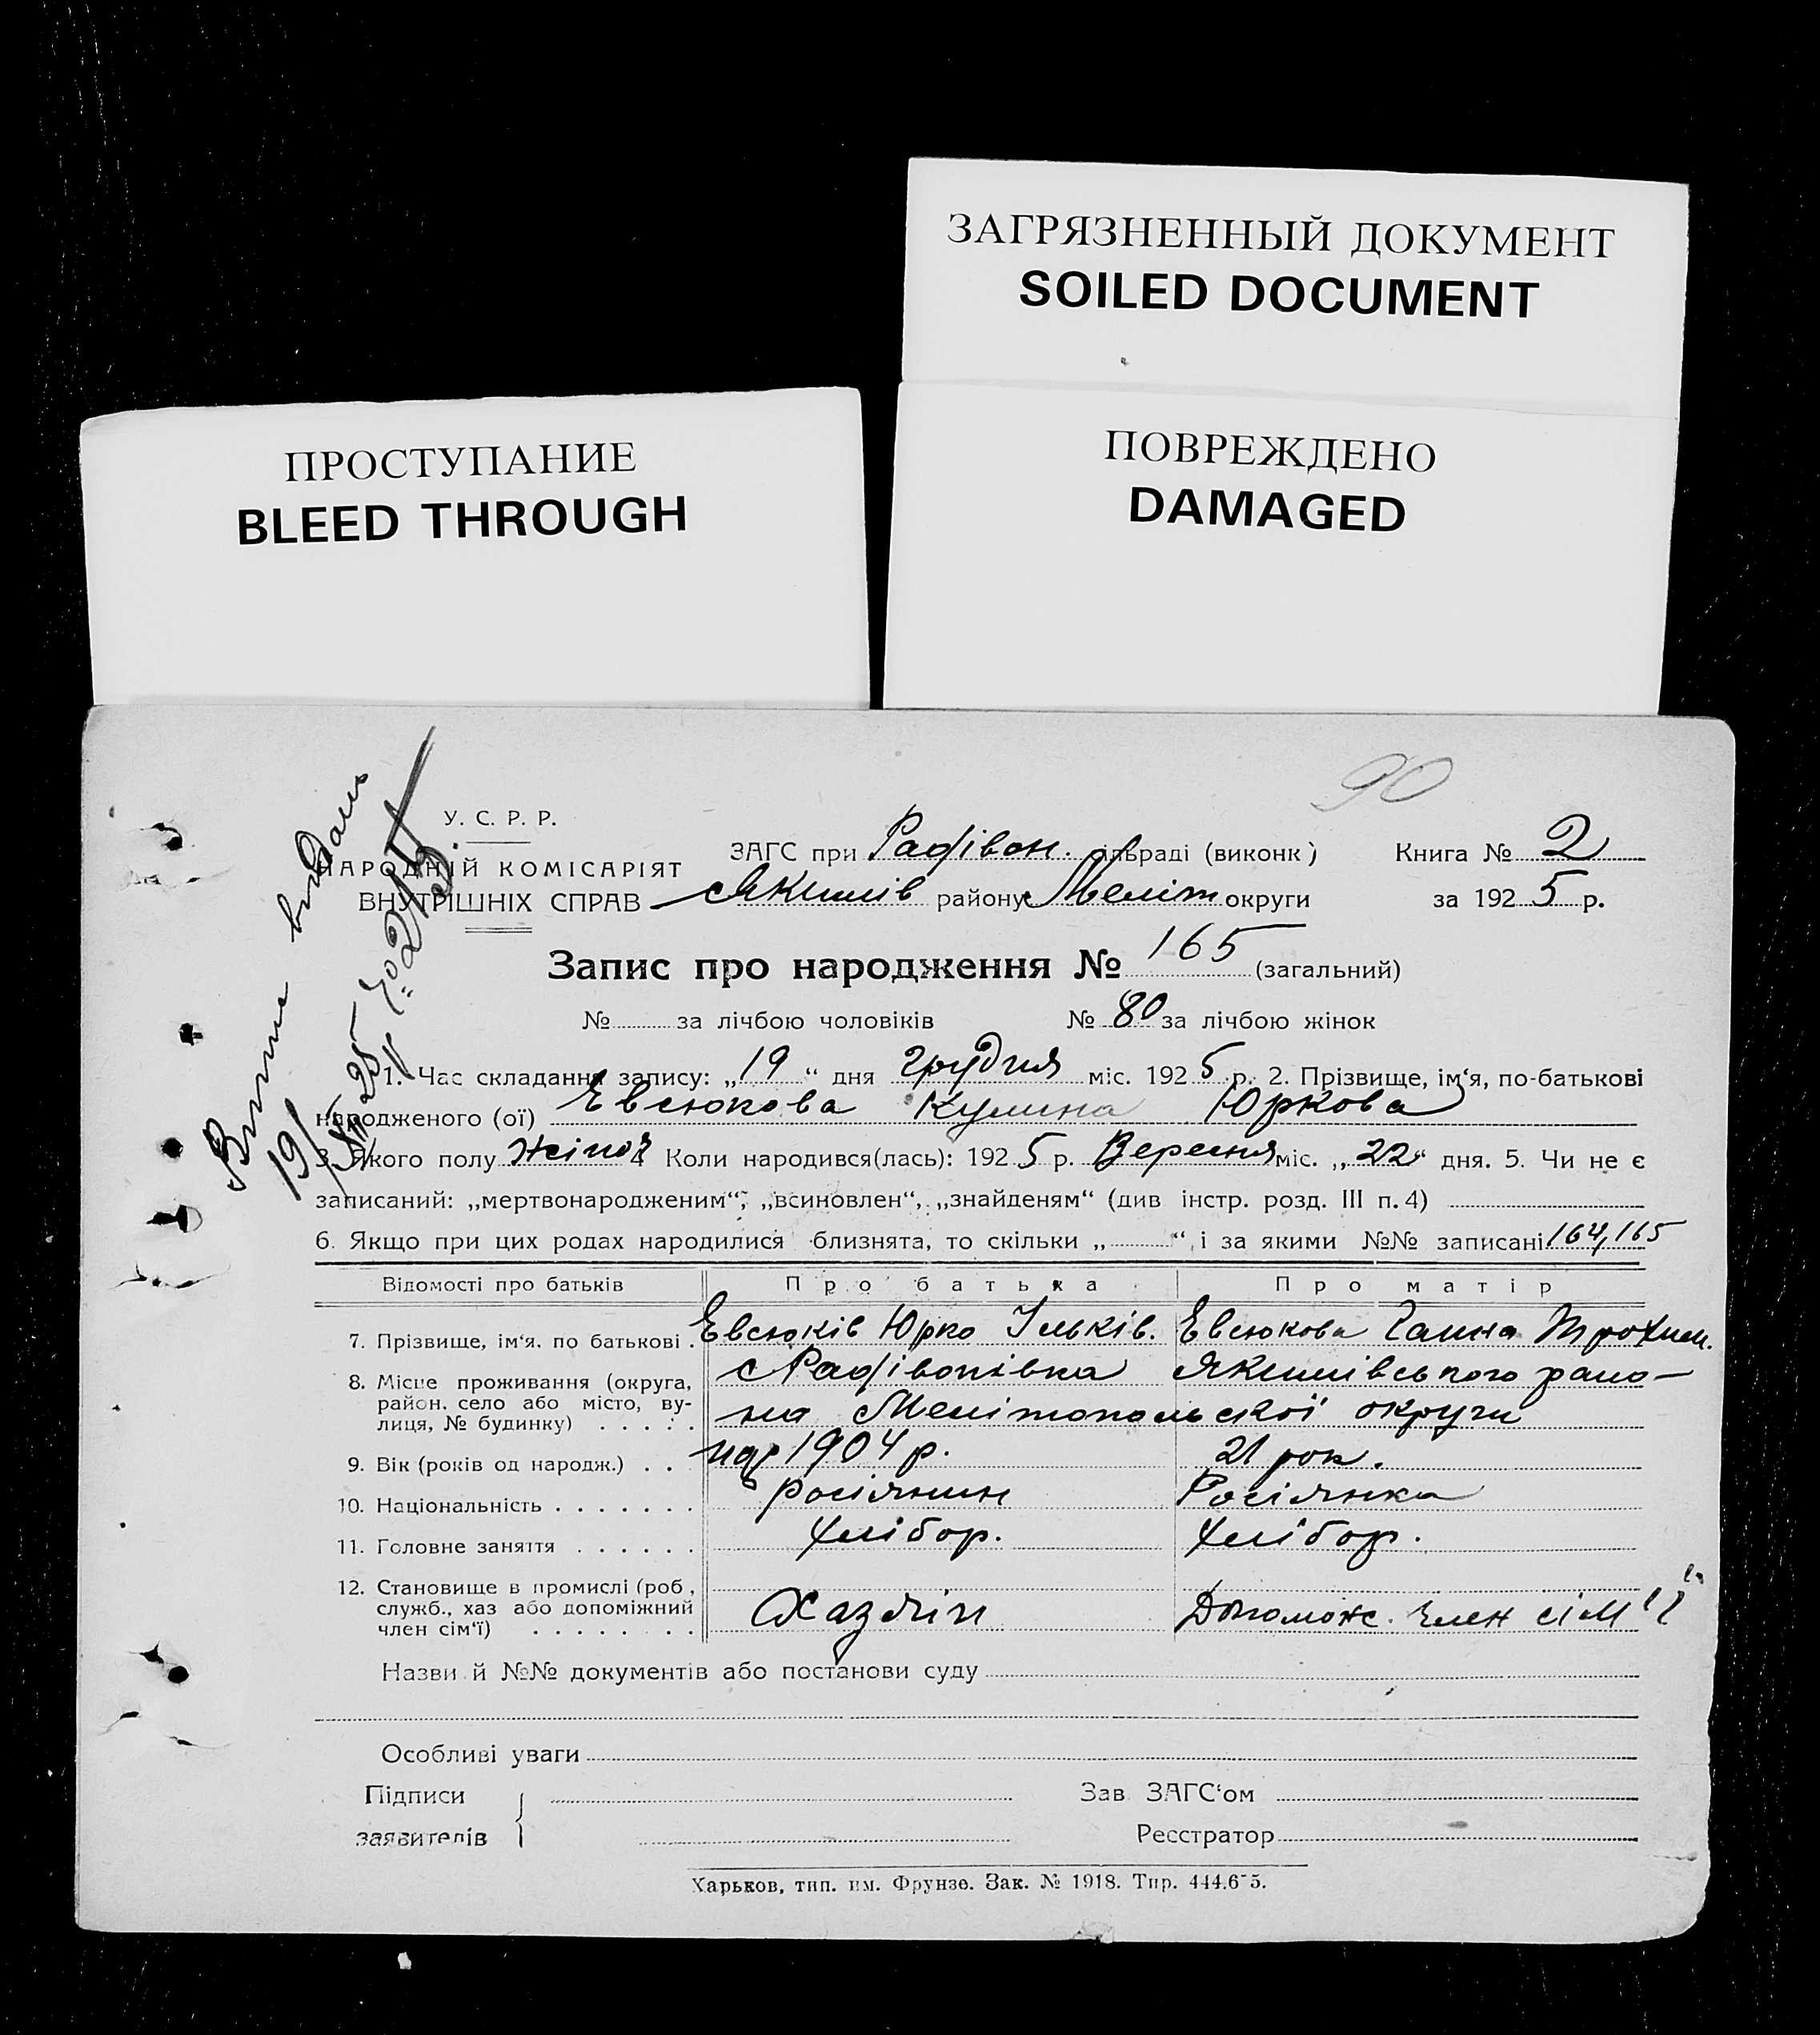 ЗАГРЯЗНЕННЫЙ ДОКУМЕНТ
SOILED DOCUMENT
ПРОСТУПАНИЕ
BLEED THROUGH
ПОВРЕЖДЕНО
DAMAGED
90
У. С. Р. Р.
НАРОДНІЙ КОМІСАРІЯТ
ВНУТРІШНІХ СПРАВ
ЗАГС при Радівон. сільраді (виконк)
Якимів району Меліт округи
Книга № 2
за 1925 р.
Запис про народження № 165 (загальний)
№ за лічбою чоловіків № 80 за лічбою жінок
1. Час складання запису: „19“ дня грудня міс. 1925 р. 2. Прізвище, ім‘я, по-батькові
народженого (ої) Евсюкова Кулина Юркова
3. Якого полу жіноч 4 Коли народився(лась): 1925 р. Вересня міс. „22“ дня. 5. Чи не є
записаний: „мертвонародженим“, „всиновлен“, „знайденям“ (див інстр. розд. III п. 4)
6. Якщо при цих родах народилися близнята, то скільки „ “ і за якими №№ записані 164, 165
Відомості про батьків Про батька Про матір
7. Прізвище, ім‘я, по батькові . Евсюків Юрко Ільків. Евсюкова Ганна Трохим.
8. Місце проживання (округа, район. село або місто, вулиця, № будинку) . . . . . с Радівонівка Якимівського райо-
на Мелітопольскої округи
9. Вік (років од народж.) . . 1904 р. 21 рок.
10. Національність . . . . . . . росіянин Росіянка
11. Головне заняття . . . . . . Хлібор. Хлібор.
12. Становище в промислі (роб, служб., хаз або допоміжний член сім‘ї) . . . . . . . Хазяїн Допомож. член сім'ї
Назви й №№ документів або постанови суду
Особливі уваги
Підписи
заявителів
Зав ЗАГС‘ом
Реєстратор
Харьков, тип. им. Фрунзе. Зак. № 1918. Тир. 444.675.